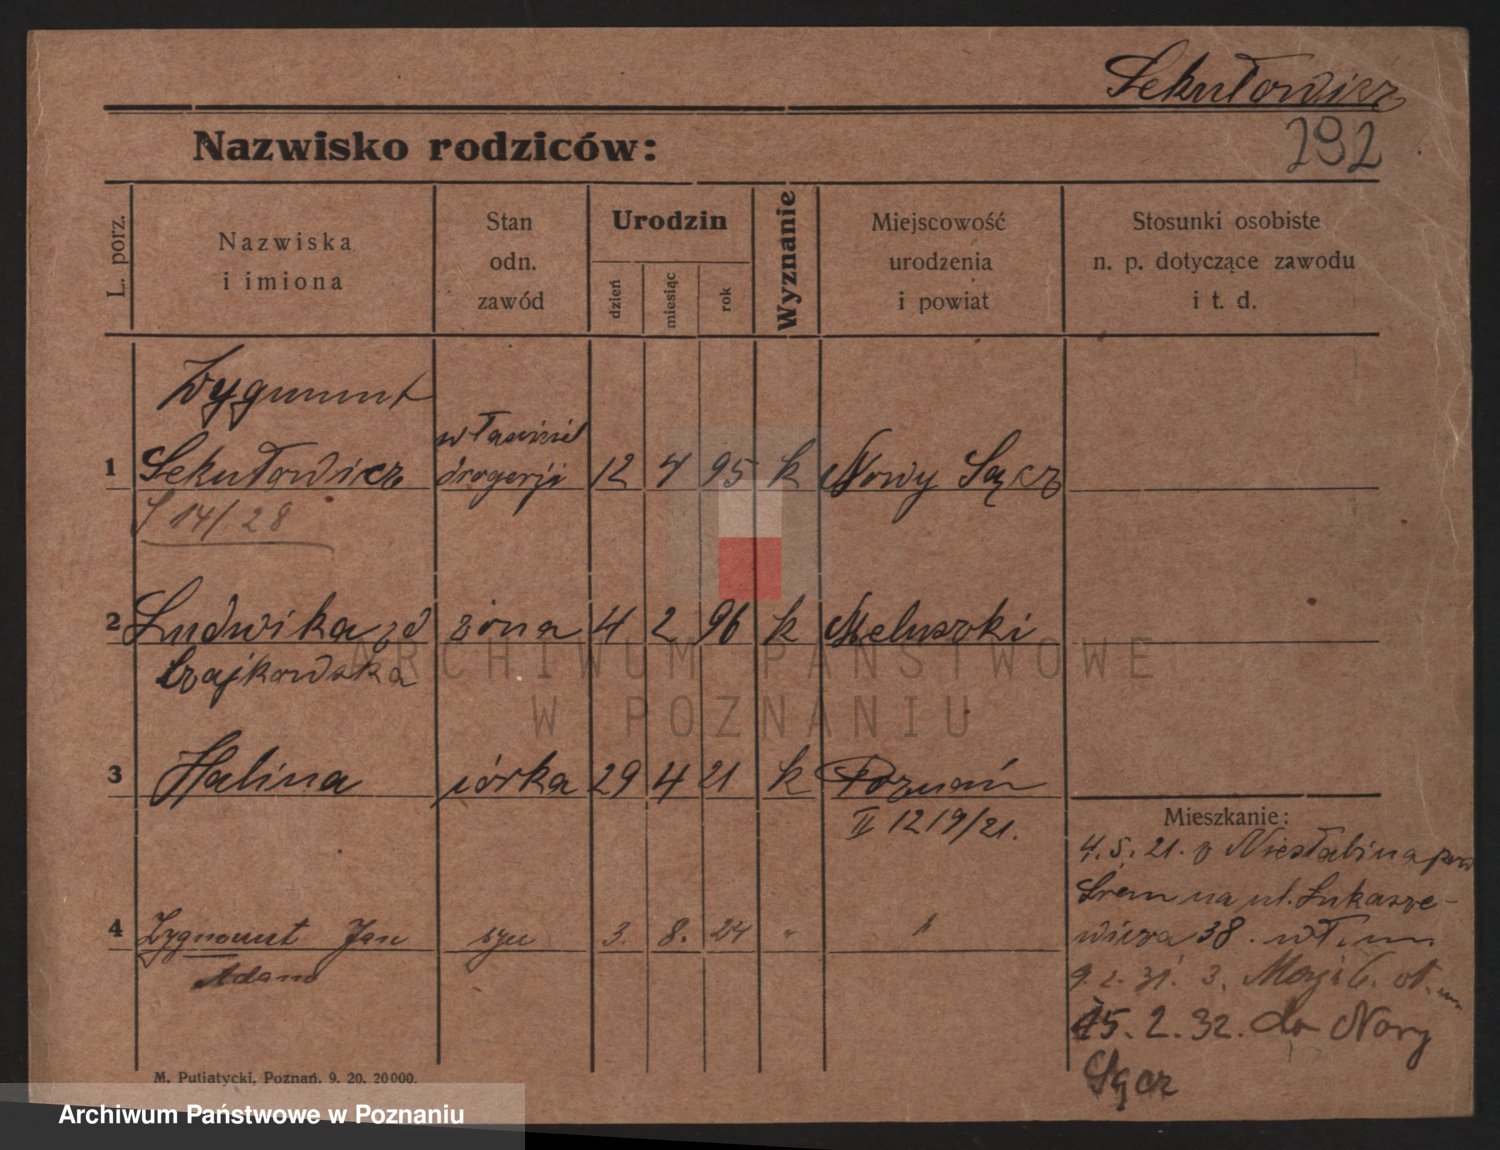 Sekułowicz
292
Nazwisko rodziców:
L. porz.
Nazwiska
i imiona
Stan
odn.
zawód
Urodzin
dzień
miesiąc
rok
Wyznanie
Miejscowość
urodzenia
i powiat
Stosunki osobiste
n. p. dotyczące zawodu
i t. d.
Zygmunt
właściciel
1 Sekułowicz drogerji 12 4 95 k Nowy Sącz
14/28
2 Ludwika zd żona 4 2 96 k
Czajkowska
3 Halina córka 29 4 21 k Poznań
II 1219/21.
Mieszkanie:
4. 5. 21. z
Śrem na ul. Łukasze-
4 Zygmunt Jan syn 3. 8. 24 "
wicza 38.
Adam
9. 2. 31. 3.
15. 2. 32. do Nowy
Sącz
M. Putiatycki, Poznań. 9. 20. 20000.
ARCHIWUM PAŃSTWOWE
W POZNANIU
Archiwum Państwowe w Poznaniu